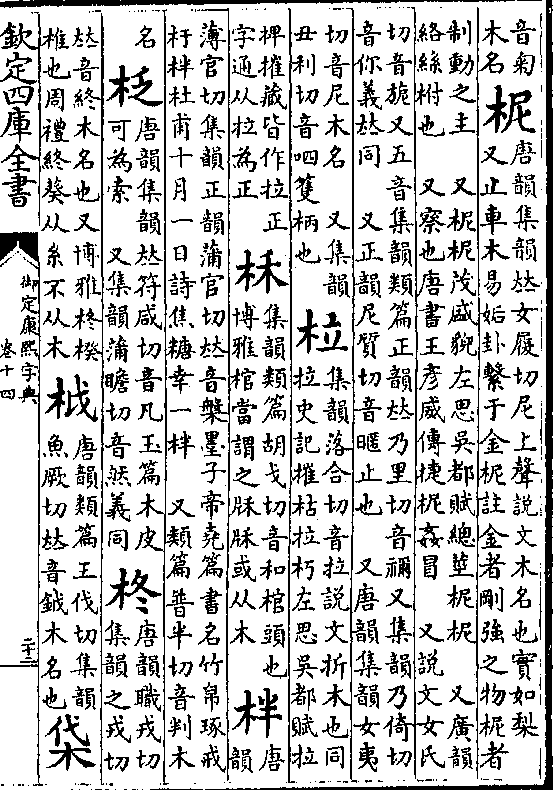 音菊柅唐韻集韻𠀤女履切尼上聲說文木名也實如梨
木名柅又止車木易姤卦繫于金柅註金者剛強之物柅者
制動之主　又柅柅茂盛貌左思吳都賦總莖柅柅　又廣韻
絡絲柎也　又察也唐書王彥威傳捷柅姦冒　又說文女氏
切音旎又五音集韻類篇正韻𠀤乃里切音禰又集韻乃倚切
音你義𠀤同　又正韻尼質切音暱止也　又唐韻集韻女夷
切音尼木名　又集韻
丑利切音呬篗柄也
柆集韻落合切音拉說文折木也同
拉史記摧枯拉朽左思吳都賦拉
捭摧藏皆作拉正
字通从拉為正
枺集韻類篇胡戈切音和棺頭也
博雅棺當謂之㭋㭋或从木
柈唐韻
薄官切集韻正韻蒲官切𠀤音槃墨子帝堯篇書名竹帛琢戒
杅柈杜甫十月一日詩焦糖幸一柈　又類篇普半切音判木
名
柉唐韻集韻𠀤符咸切音凡玉篇木皮
可為索　又集韻蒲瞻切音㷎義同
柊唐韻職戎切
集韻之戎切
𠀤音終木名也又博雅柊楑
椎也周禮終葵从糸不从木
㭕唐韻類篇王伐切集韻
魚厥切𠀤音鉞木名也
柋
欽定四庫全書
御定康熙字典
卷十四
二十三